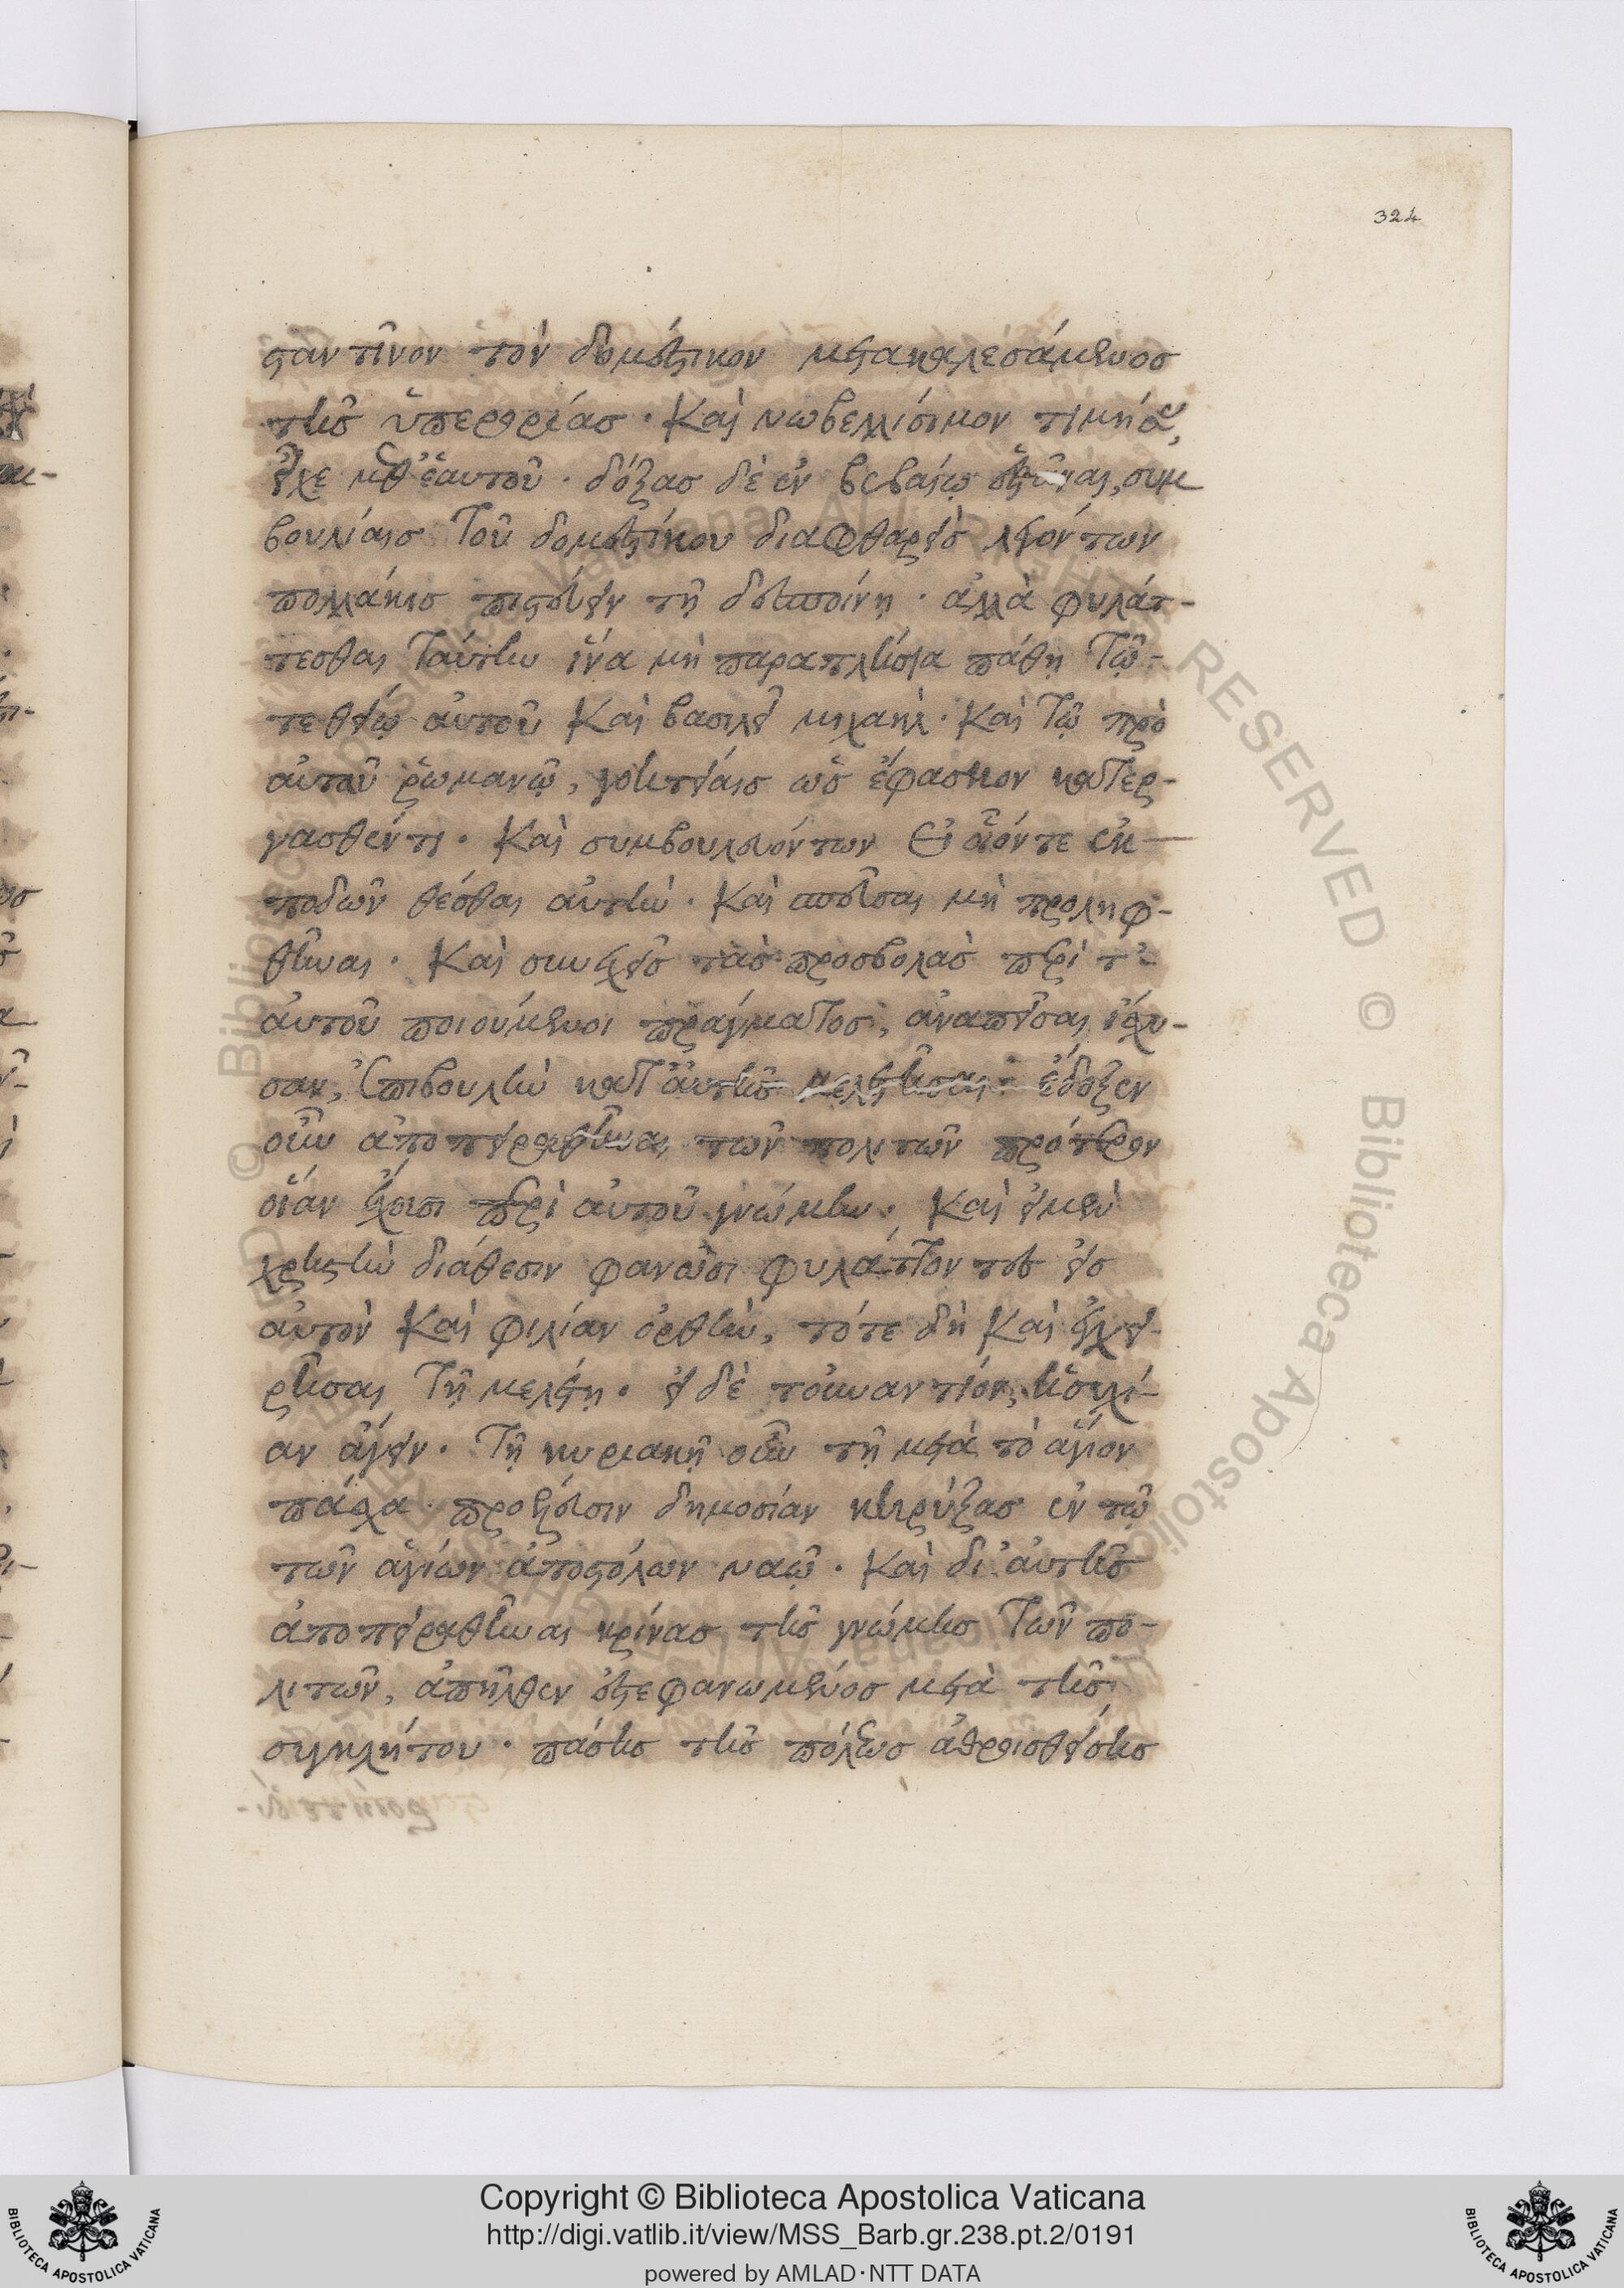 324
σταντῖνον τὸν δομέστικον μετακαλεσάμενος
τῆς ὑπερορίας · Καὶ νωβελλίσιμον τιμήσας,
εἶχε μεθ ἑαυτοῦ · δόξας δὲ ἐν βεβαίῳ ἑστᾶναι, συμ
βουλίαις τοῦ δομεστίκου διαφθαρεὶς λεγόντων
πολλάκις πιστεύειν τῇ δεσποίνῃ · ἀλλὰ φυλάτ-
τεσθαι ταύτην ἵνα μὴ παραπλήσια πάθῃ τῷ-
τε θείῳ αὐτοῦ Καὶ βασιλεῖ μιχαήλ · Καὶ τῷ πρὸ
αὐτοῦ ῥωμανῷ, γοητείαις ὡς ἔφασκον κατερ-
γασθέντι · Καὶ συμβουλευόντων εἰ οἷόν τε ἐκ
ποδῶν θέσθαι αὐτήν · Καὶ μὴ προληφ-
θῆναι · Καὶ συνεχεῖς τὰς προσβολὰς περὶ τ-
αὐτοῦ ποιούμενοι πράγματος, ἀναπεῖσαι ἴσχυ-
σαν, ἐπιβουλὴν κατ αὐτῆς μελετῆσαι · ἔδοξεν
οὖν ἀποπειραθῆναι τῶν πολιτῶν πρότερον
οἵαν ἔχοισι περὶ αὐτοῦ γνώμην · Καὶ εἰ μὲν
χρηστὴν διάθεσιν φανῶσι φυλάττοντες εἰς
αὐτὸν Καὶ φιλίαν ὀρθήν, τότε δὴ Καὶ ἐγχει-
ρῆσαι τῇ μελέτῃ · εἰ δὲ τοὐναντίον, ἡσυχί-
αν ἄγειν · Τῇ κυριακῇ οὖν τῇ μετὰ τὸ ἅγιον
πάσχα · προέλευσιν δημοσίαν κηρύξας ἐν τῷ
τῶν ἁγίων ἀποστόλων ναῷ · Καὶ δι αὐτῆς
ἀποπειραθῆναι κρίνας τῆς γνώμης τῶν πο-
λιτῶν, ἀπῆλθεν ἐστεφανωμένος μετὰ τῆς
συγκλήτου · πάσης τῆς πόλεως ἀθροισθείσης
Copyright © Biblioteca Apostolica Vaticana
http://digi.vatlib.it/view/MSS_Barb.gr.238.pt.2/0191
powered by AMLAD·NTT DATA